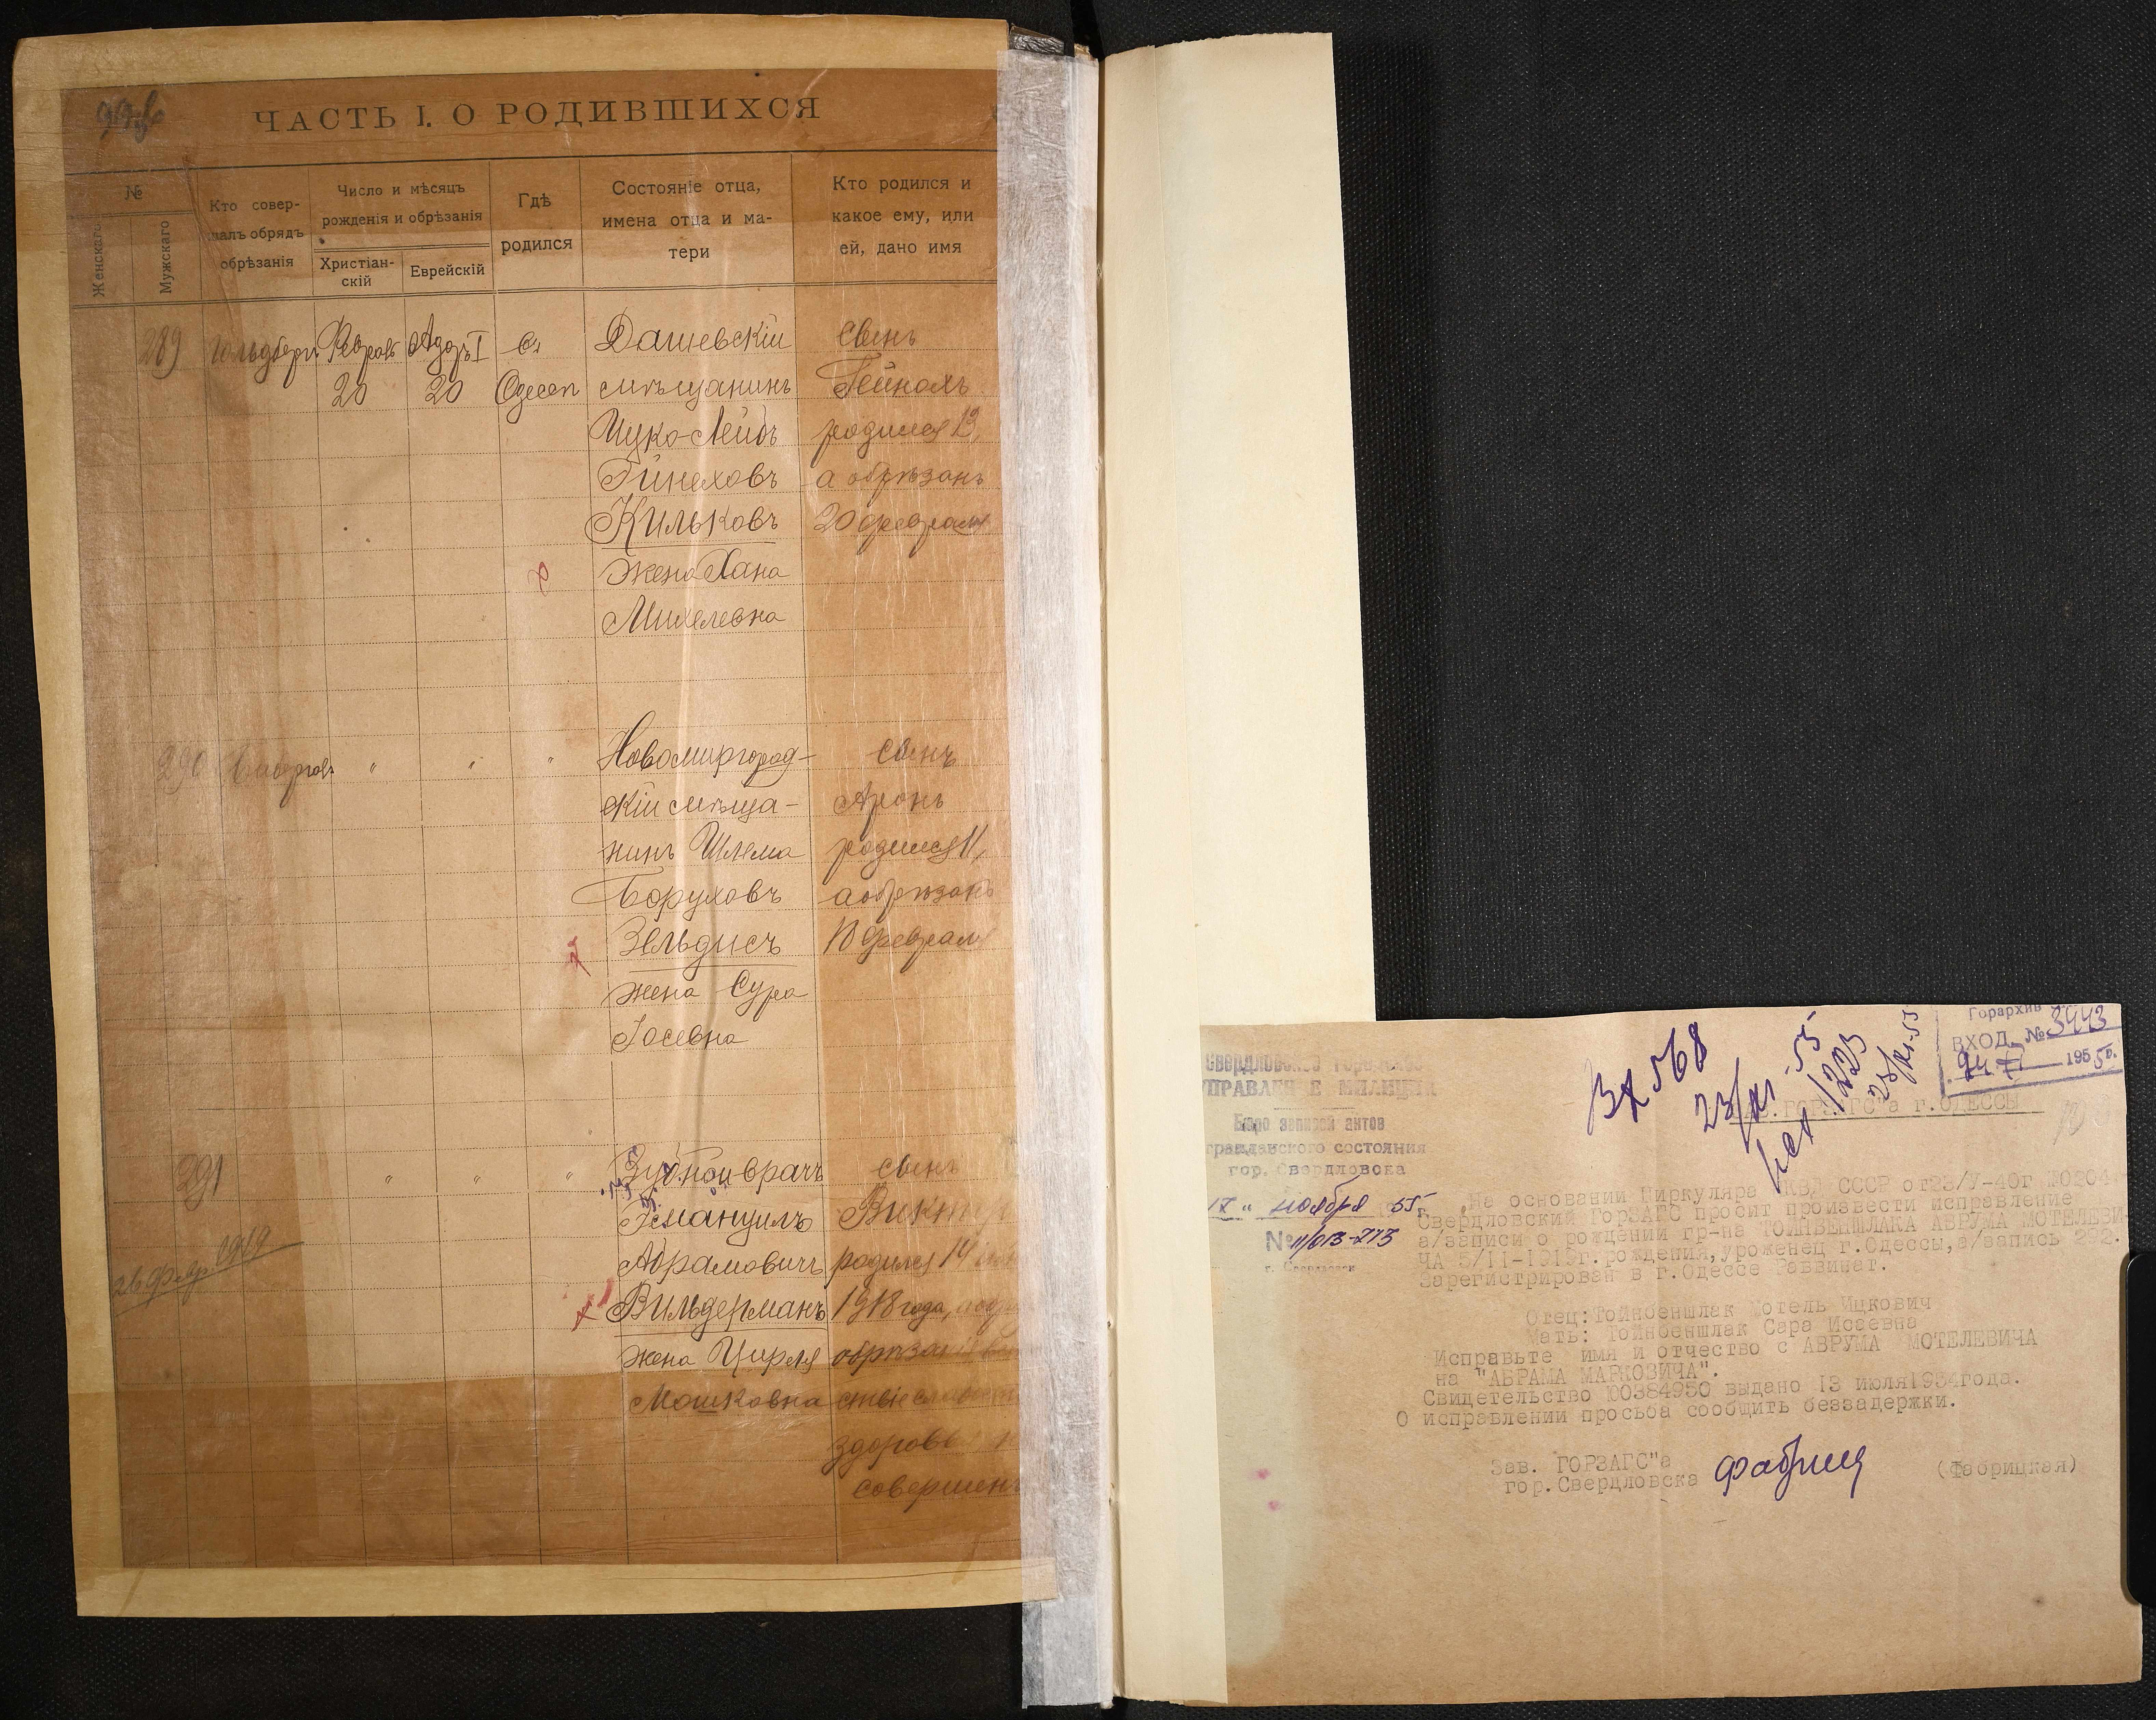 ЧАСТЬ I. О РОДИВШИХСЯ
№
Женскаго
Мужскаго
Кто совер-
шалъ обрядъ
обрѣзанія
Число и мѣсяцъ
рожденія и обрѣзанія
Христіан-
скій
Еврейскій
Гдѣ
родился
Состояніе отца,
имена отца и ма-
тери
Кто родился и
какое ему, или
ей, дано имя
289
Адаръ I
20
20
Дашевскій
мѣщанинъ
Ицко-Лейбъ
Кильковъ
Жена Хана
Михелевна
сынъ
родился 13,
а обрѣзанъ
20 февраля
290
"
"
"
Новомиргород-
скій мѣща-
нинъ Шлема
Боруховъ
Зельдисъ
жена Сура
Іосевна
сынъ
Аронъ
родился 11,
а обрѣзанъ
18 февраля
291
26 февр. 1919
"
"
"
Зубной врачъ
Эмануилъ
Абрамовичъ
Вильдерманъ
жена Цирля
Мошковна
сынъ
родился 14
1918 года,
здоровья
совершенъ
Свердловское городское
УПРАВЛЕНИЕ МИЛИЦИИ
Бюро записей актов
гражданского состояния
гор. Свердловска
17 " ноября 55г.
№ 11/013-713
г. Свердловск
Вх 568
23/XI-55
исх 1223
28/XI-55
Горархив
ВХОД. № 3443
1955г.
Зав. ГОРЗАГС"а г.ОДЕССЫ
На основании Циркуляра НКВД СССР от 23/V-40г №0204
Свердловский ГорЗАГС просит произвести исправление
а/записи о рождении гр-на ТОЙНБЕНШЛАКА АВРУМА МОТЕЛЕВИ-
ЧА 5/11-1919г. рождения, уроженец г.Одессы, а/запись 292.
Зарегистрирован в г.Одессе Раввинат.
Отец: Тойнбеншлак Мотель Ицкович
Мать: Тойнбеншлак Сара Исаевна
Исправьте имя и отчество с АВРУМА МОТЕЛЕВИЧА
на "АБРАМА МАРКОВИЧА".
Свидетельство 00384950 выдано 13 июля 1954 года.
О исправлении просьба сообщить беззадержки.
Зав. ГОРЗАГС"а
гор.Свердловска
(Фабрицкая)